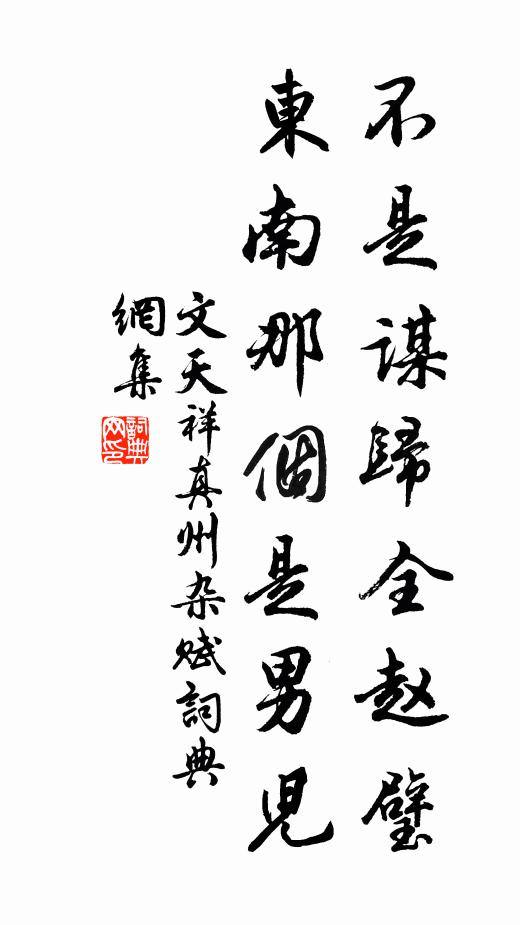 不是謀歸全赵璧
東南那個是男児
文天祥真州杂赋詞典
網集
詞典网印